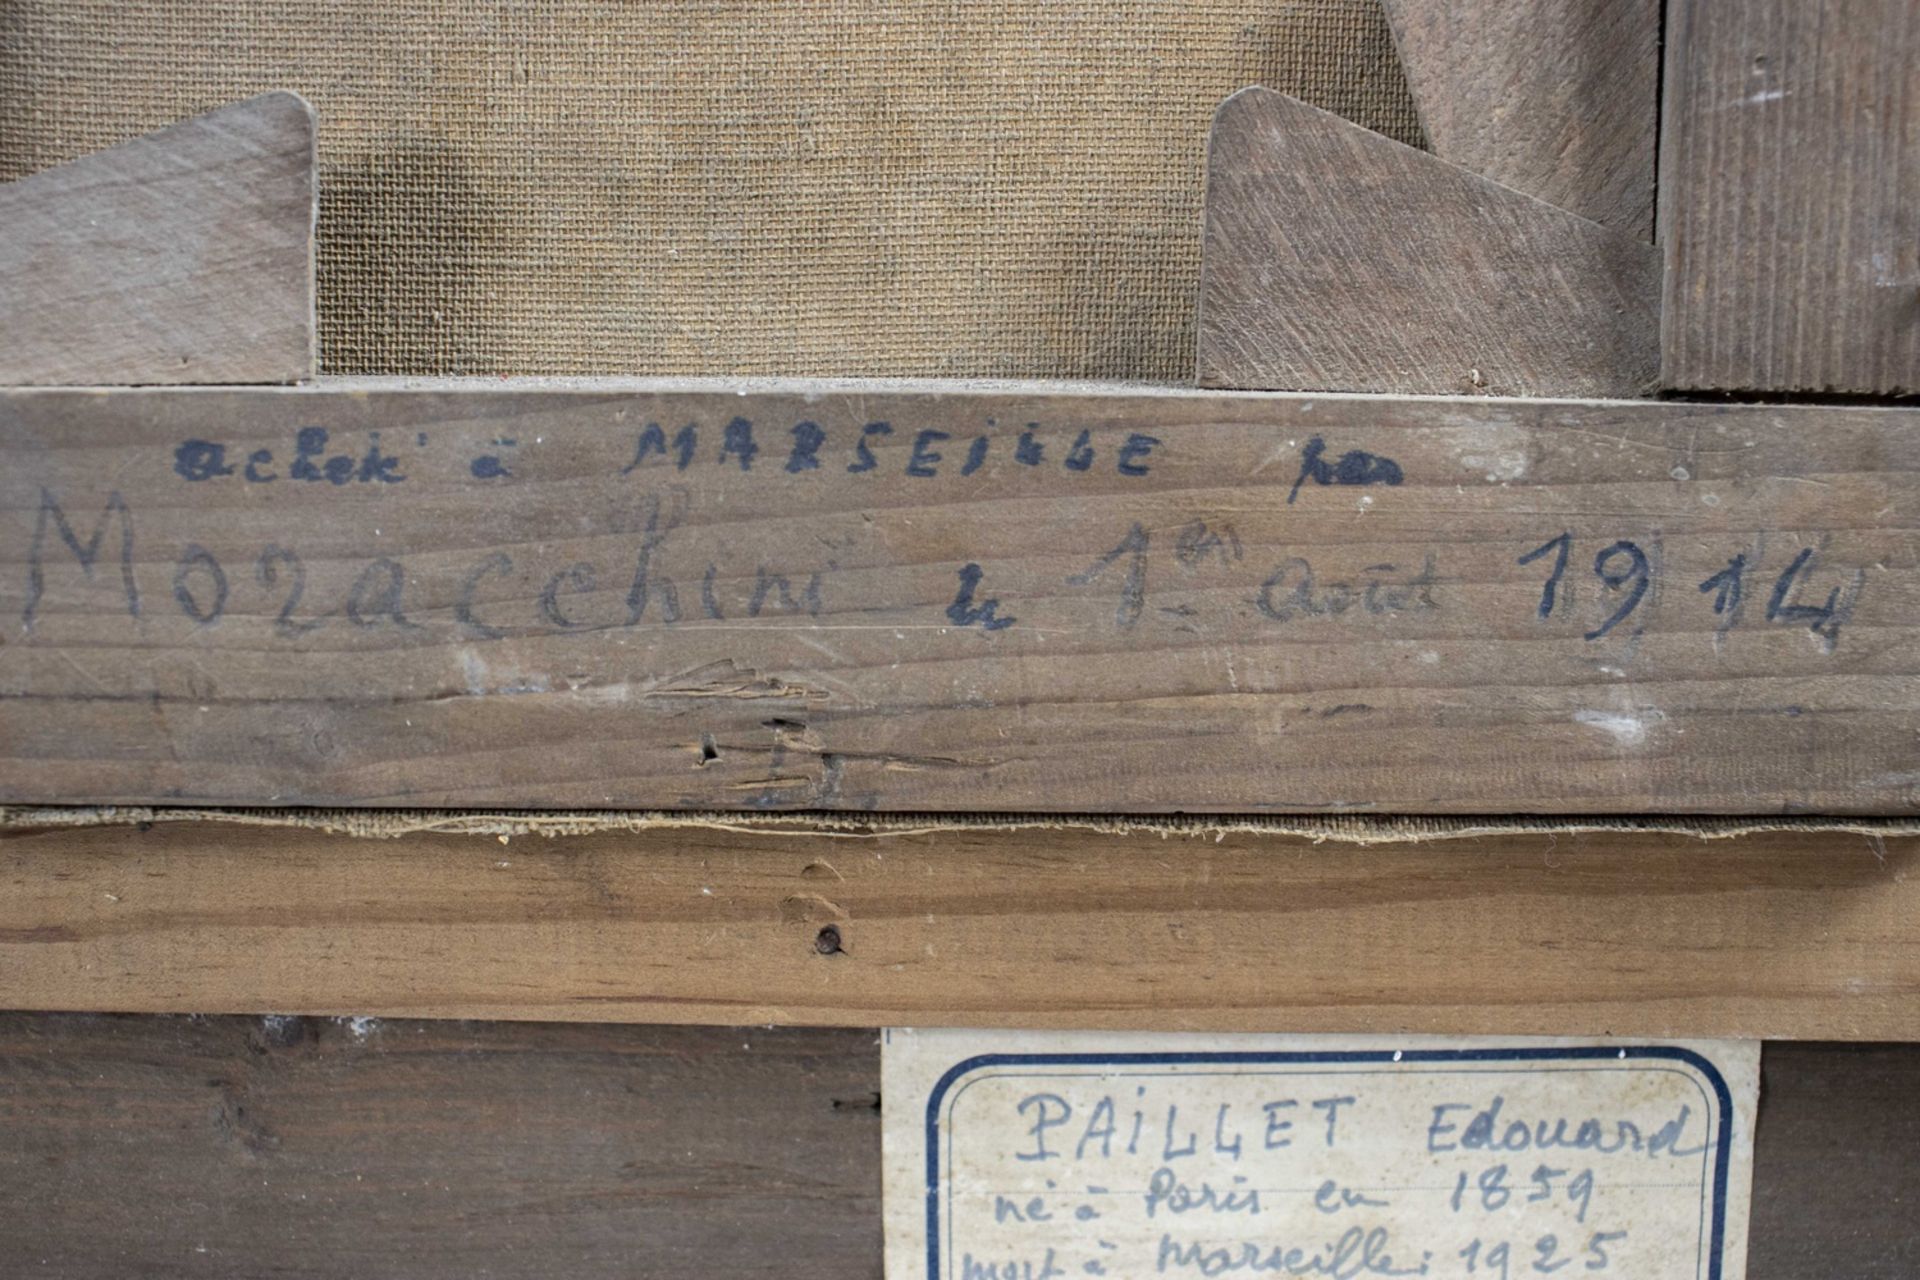 acheté à MARSEiLLE par
Moracchini le 1er Août 1914
PAiLLET Edouard
né à Paris en 1859
mort à Marseille: 1925